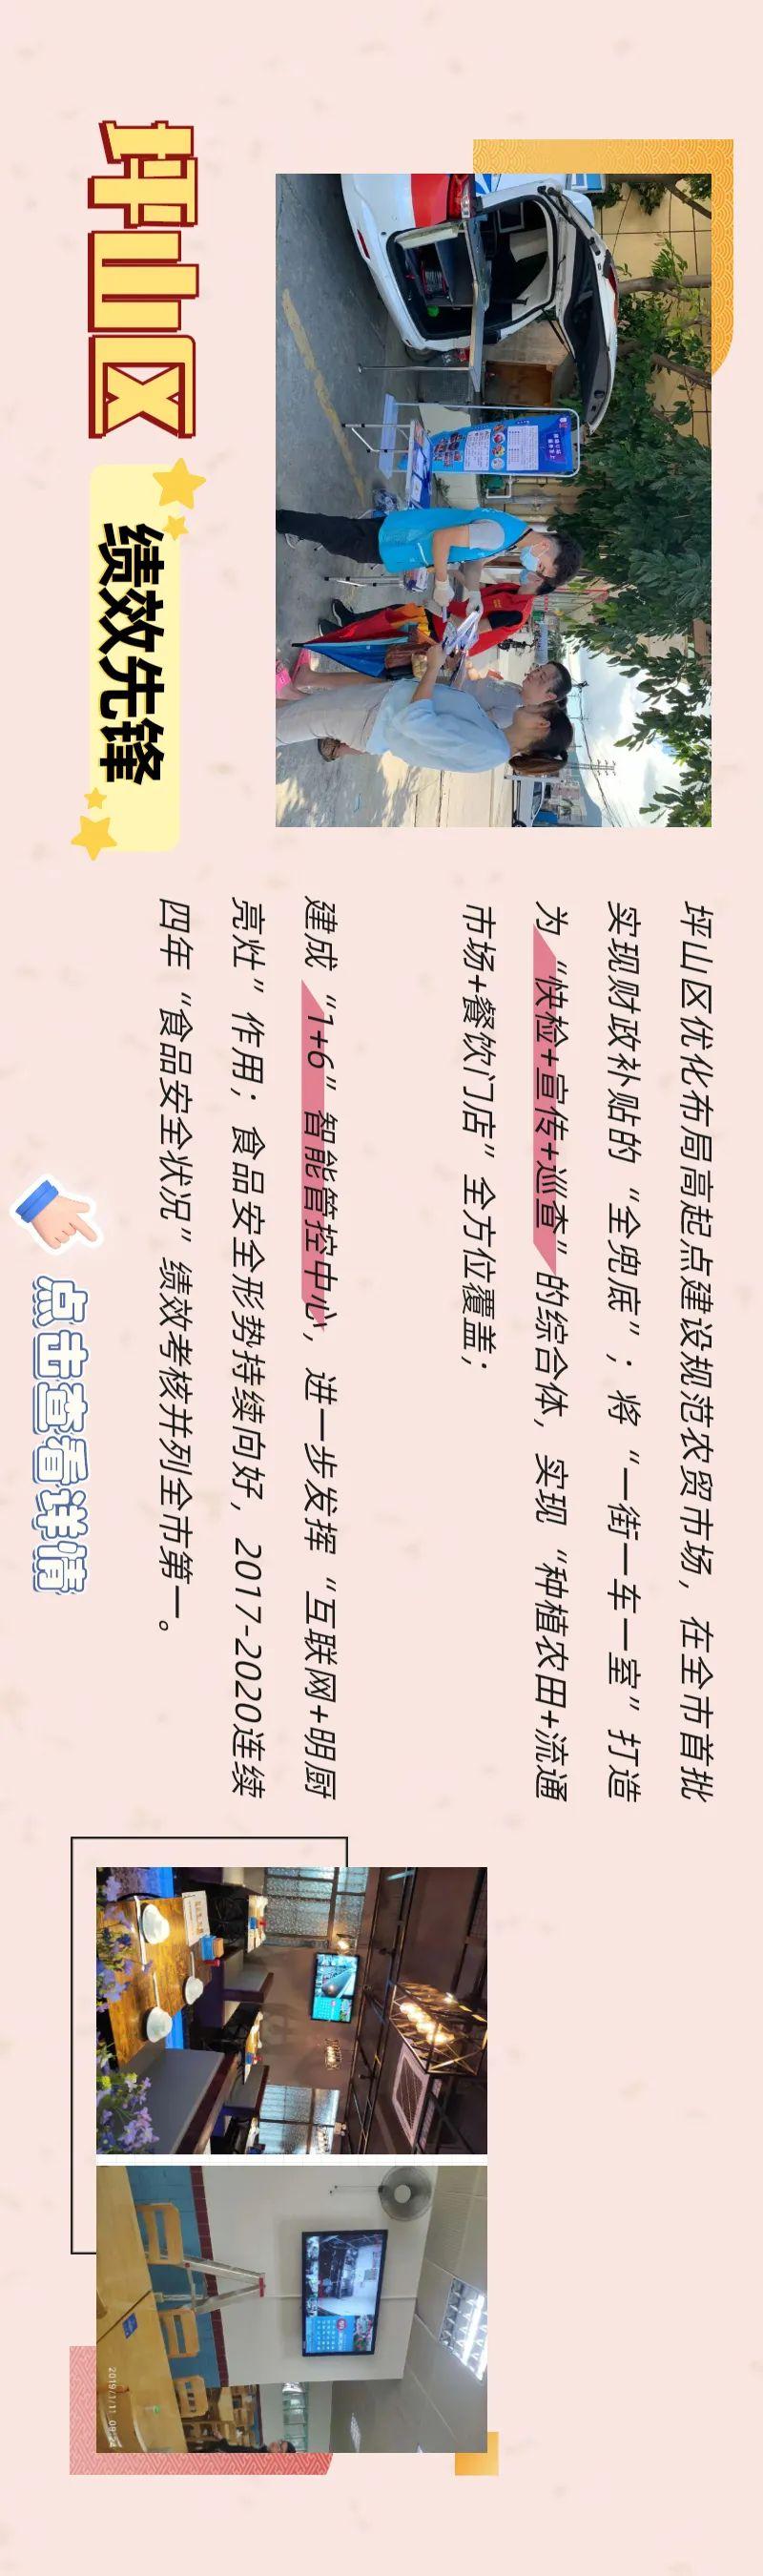 坪山区优化布局高起点建设规范农贸市场，在全市首批
实现财政补贴的“全兜底”；将“一街一车一室”打造
为“快检+宣传+巡查”的综合体，实现“种植农田+流通
市场+餐饮门店”全方位覆盖；
建成“1+6”智能管控中心，进一步发挥“互联网+明厨
亮灶”作用；食品安全形势持续向好，2017-2020连续
四年“食品安全状况”绩效考核并列全市第一。
坪山区
绩效先锋
点击查看详情